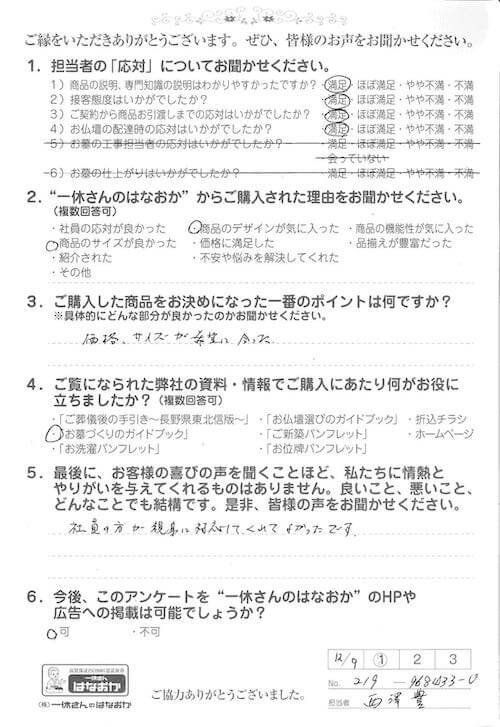 ご縁をいただきありがとうございます。ぜひ、皆様のお声をお聞かせください。
1. 担当者の「応対」についてお聞かせください。
1）商品の説明、専門知識の説明はわかりやすかったですか？ 満足・ほぼ満足・やや不満・不満
2）接客態度はいかがでしたか？ 満足・ほぼ満足・やや不満・不満
3）ご契約から商品お引渡しまでの応対はいかがでしたか？ 満足・ほぼ満足・やや不満・不満
4）お仏壇の配達時の応対はいかがでしたか？ 満足・ほぼ満足・やや不満・不満
5）お墓の工事担当者の応対はいかがでしたか？ 満足・ほぼ満足・やや不満・不満
会っていない
6）お墓の仕上がりはいかがでしたか？ 満足・ほぼ満足・やや不満・不満
2. “一休さんのはなおか”からご購入された理由をお聞かせください。
（複数回答可）
・社員の応対が良かった ・商品のデザインが気に入った ・商品の機能性が気に入った
・商品のサイズが良かった ・価格に満足した ・品揃えが豊富だった
・紹介された ・不安や悩みを解決してくれた
・その他
3. ご購入した商品をお決めになった一番のポイントは何ですか？
※具体的にどんな部分が良かったのかお聞かせください。
価格、サイズが希望に合った
4. ご覧になられた弊社の資料・情報でご購入にあたり何がお役に
立ちましたか？（複数回答可）
・「ご葬儀後の手引き〜長野県東北信版〜」 ・「お仏壇選びのガイドブック」 ・折込チラシ
・「お墓づくりのガイドブック」 ・「ご新築パンフレット」 ・ホームページ
・「お洗濯パンフレット」 ・「お位牌パンフレット」
5. 最後に、お客様の喜びの声を聞くことほど、私たちに情熱と
やりがいを与えてくれるものはありません。良いこと、悪いこと、
どんなことでも結構です。是非、皆様の声をお聞かせください。
社員の方が親身に対応してくれてよかったです。
6. 今後、このアンケートを“一休さんのはなおか”のHPや
広告への掲載は可能でしょうか？
・可 ・不可
12/9 ① 2 3
No. 219-968433-0
一休さんの
はなおか
（株）一休さんのはなおか
ご協力ありがとうございました。
担当者 西澤豊